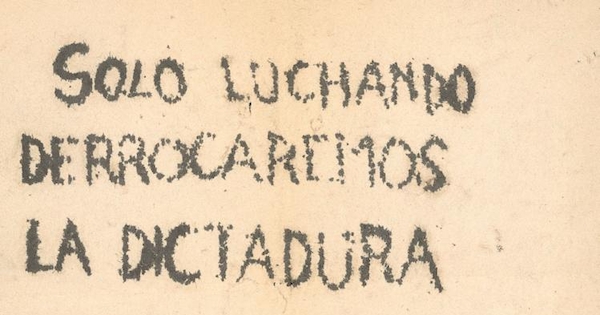 SOLO LUCHANDO
DERROCAREMOS
LA DICTADURA